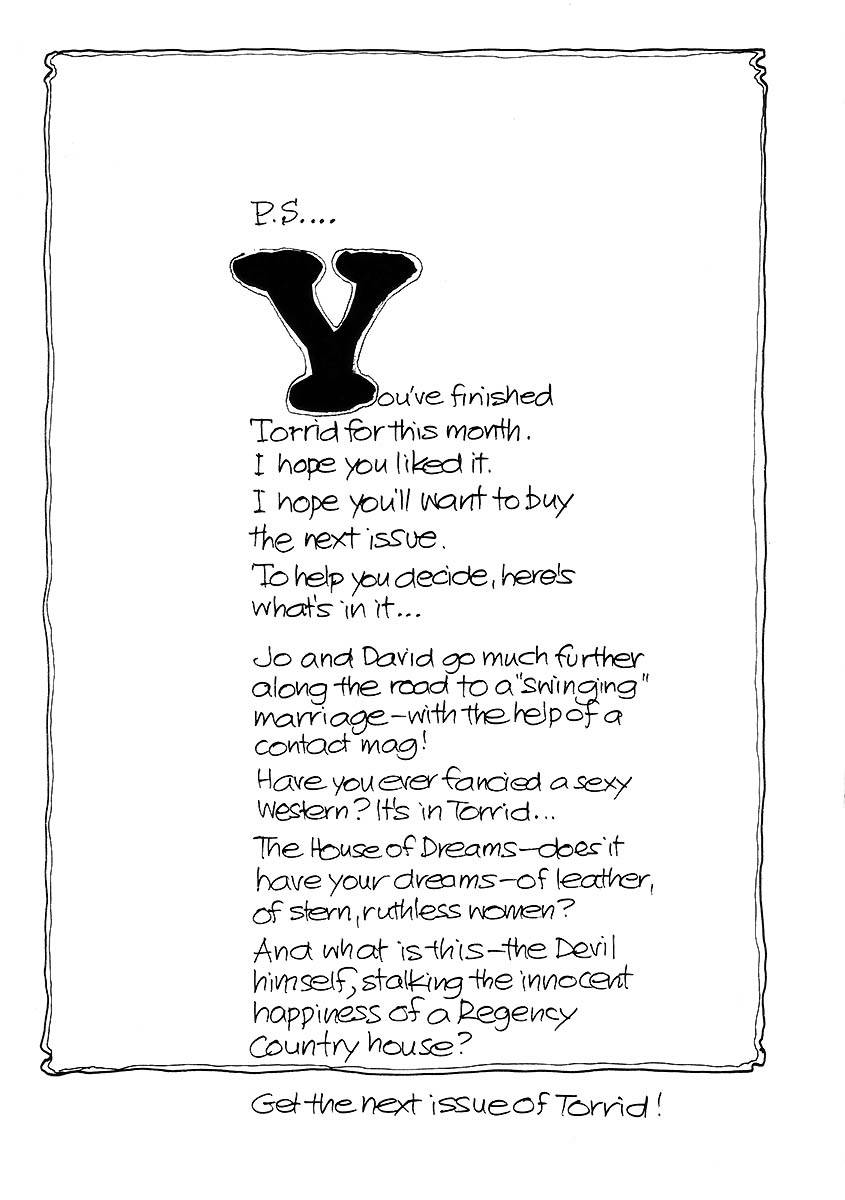 P.S....
You've finished
Torrid for this month.
I hope you liked it.
I hope you'll want to buy
the next issue.
To help you decide, here's
what's in it...
Jo and David go much further
along the road to a "swinging"
marriage–with the help of a
contact mag!
Have you ever fancied a sexy
Western? It's in Torrid...
The House of Dreams–does it
have your dreams–of leather,
of stern, ruthless women?
And what is this–the Devil
himself, stalking the innocent
happiness of a Regency
Country house?
Get the next issue of Torrid!